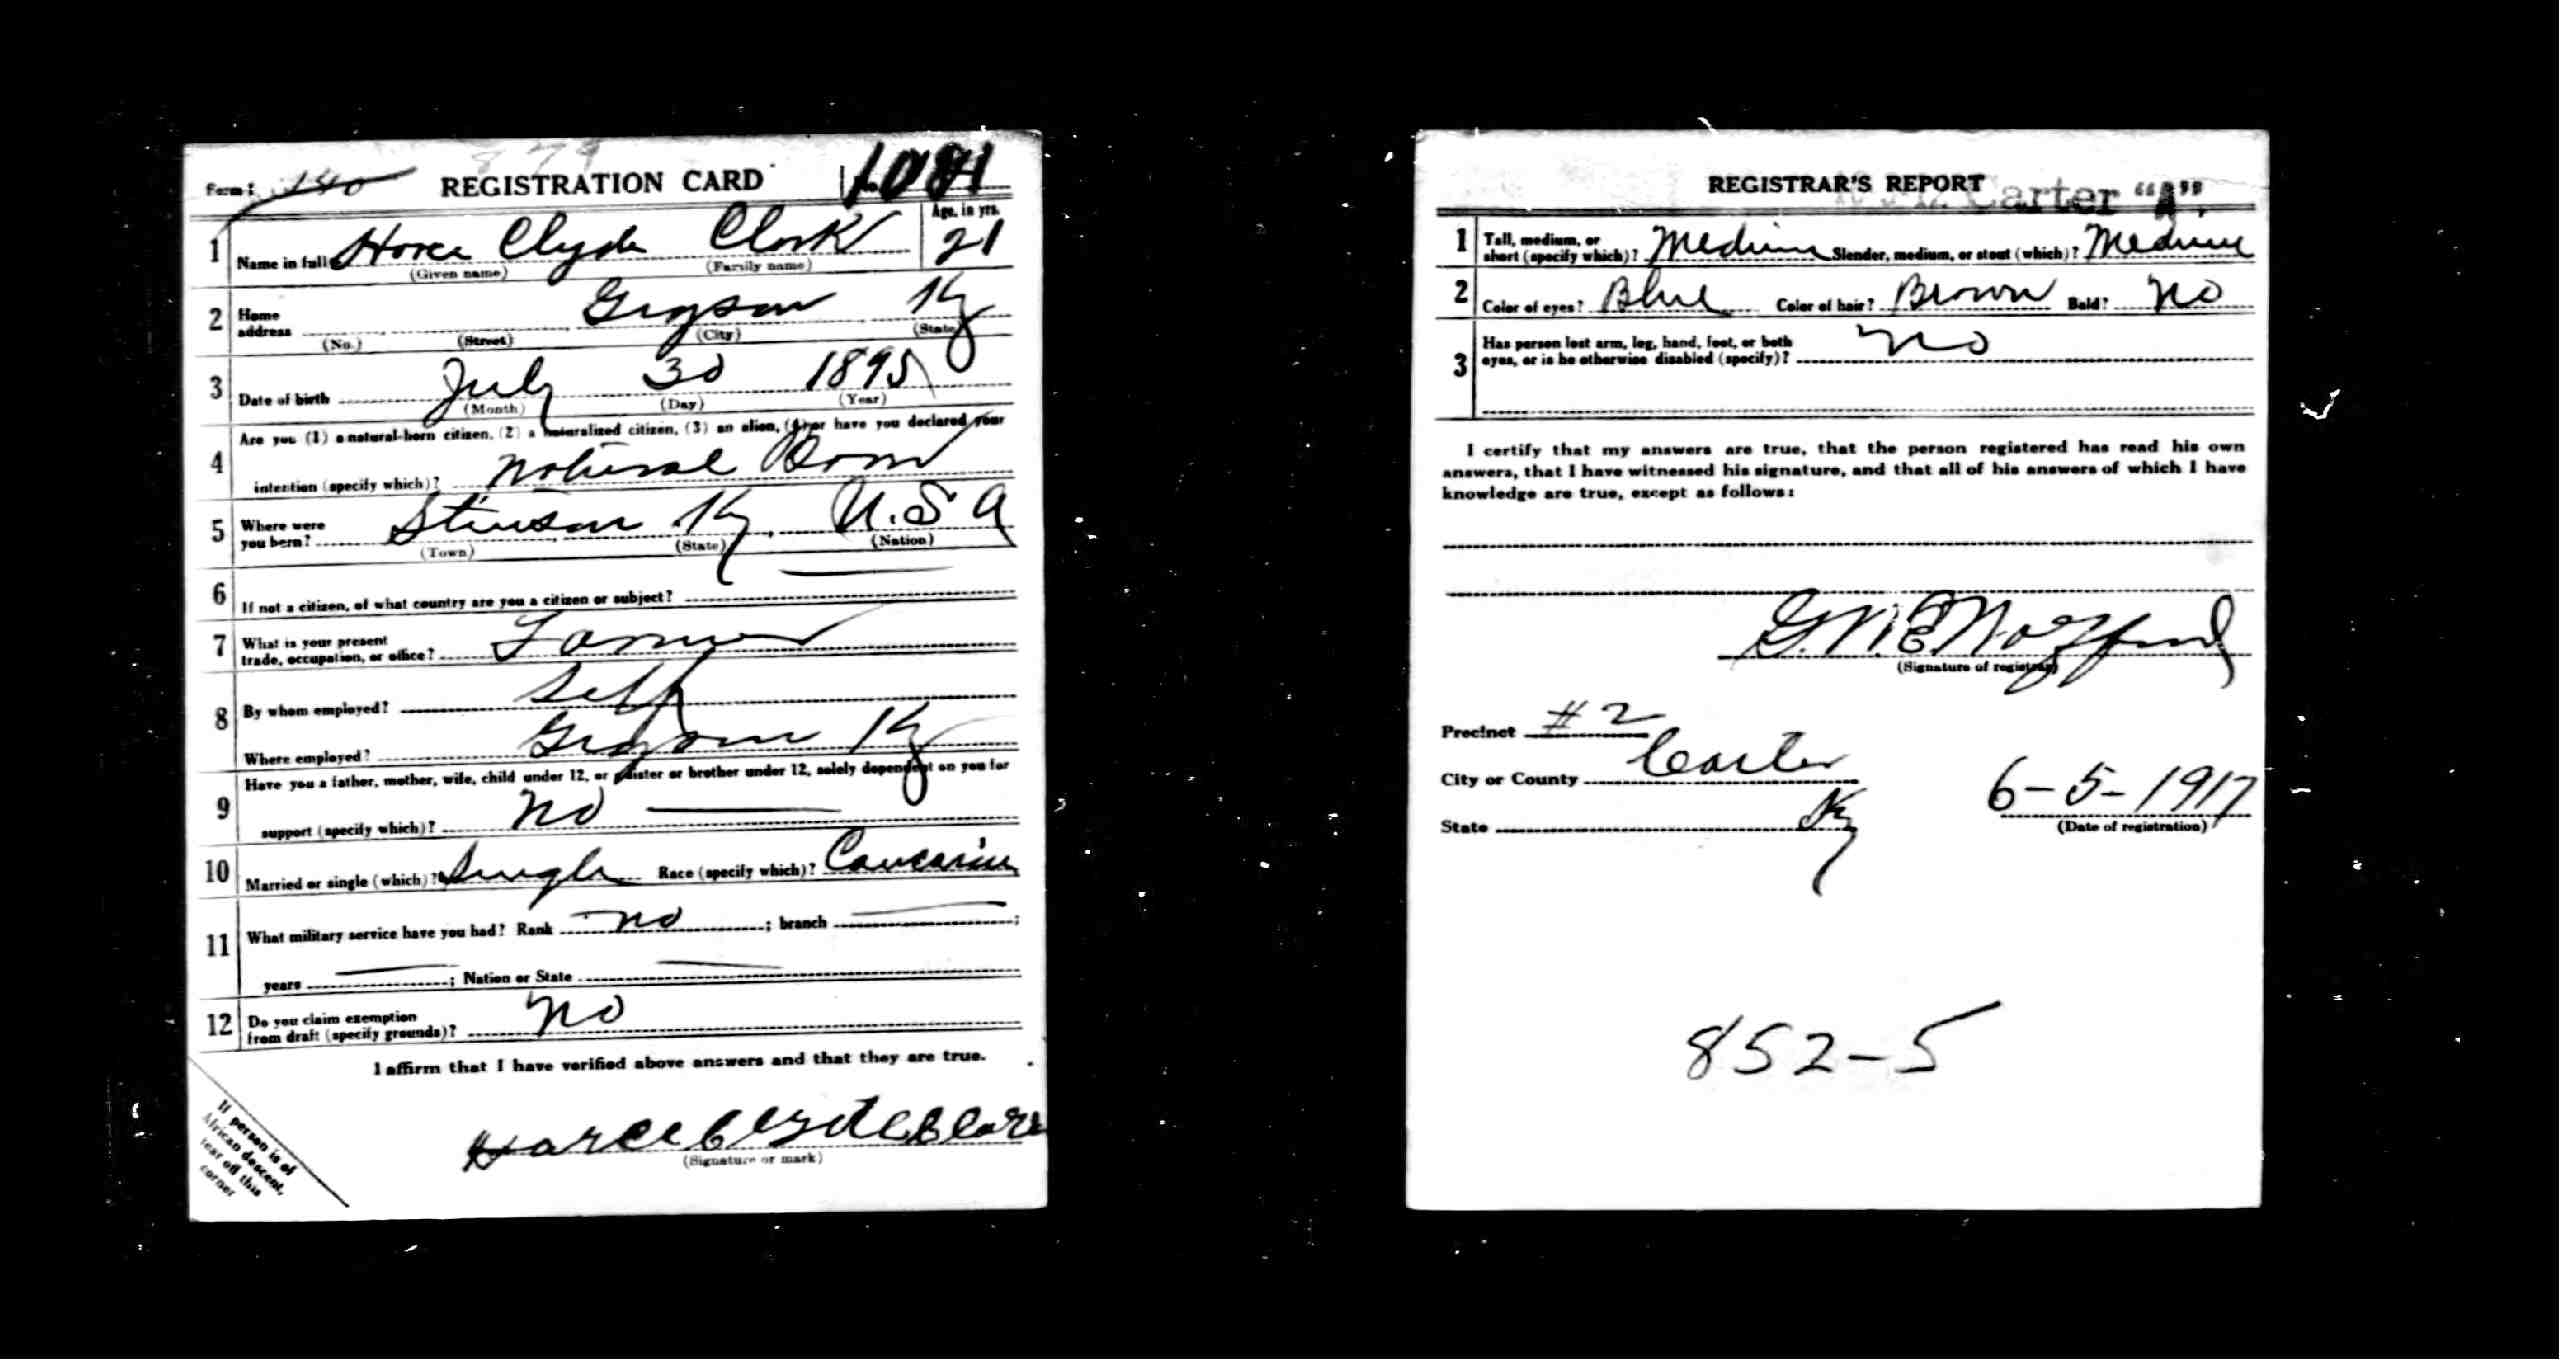 Form 1 140 REGISTRATION CARD No. 1081
1 Name in full Horce Clyde Clark Age, in yrs. 21
(Given name) (Family name)
2 Home address Grayson Ky
(No.) (Street) (City) (State)
3 Date of birth July 30 1895
(Month) (Day) (Year)
Are you (1) a natural-born citizen, (2) a naturalized citizen, (3) an alien, (4) or have you declared your
4 intention (specify which)? Natural Born
5 Where were you born? Stinson Ky U.S A
(Town) (State) (Nation)
6 If not a citizen, of what country are you a citizen or subject?
7 What is your present trade, occupation, or office? Farmer
8 By whom employed? Self
Where employed? Grayson Ky
Have you a father, mother, wife, child under 12, or a sister or brother under 12, solely dependent on you for
9 support (specify which)? No
10 Married or single (which)? Single Race (specify which)? Caucasian
11 What military service have you had? Rank no ; branch ;
years ; Nation or State
12 Do you claim exemption from draft (specify grounds)? No
I affirm that I have verified above answers and that they are true.
Horce Clyde Clark
(Signature or mark)
If person is of
African descent,
tear off this
corner
REGISTRAR'S REPORT
Carter "A".
1 Tall, medium, or short (specify which)? Medium Slender, medium, or stout (which)? Medium
2 Color of eyes? Blue Color of hair? Brown Bald? No
3 Has person lost arm, leg, hand, foot, or both eyes, or is he otherwise disabled (specify)? No
I certify that my answers are true, that the person registered has read his own
answers, that I have witnessed his signature, and that all of his answers of which I have
knowledge are true, except as follows:
(Signature of registrar)
Precinct #2
City or County Carter
State Ky
6-5-1917
(Date of registration)
852-5